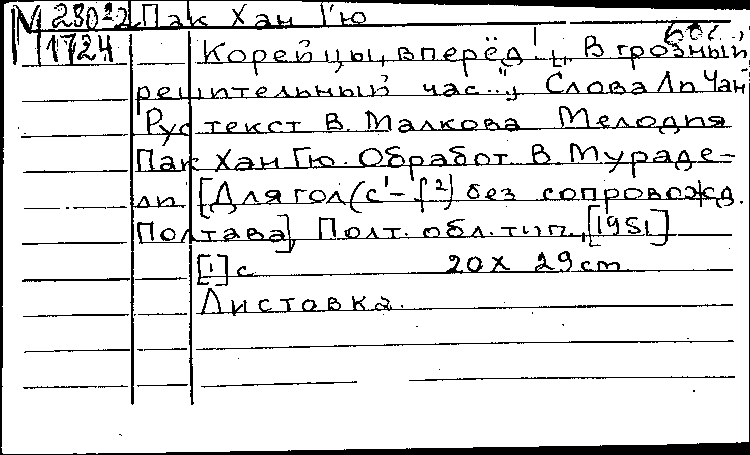 М 280-2 Пак Хан Гю
1724 Корейцы, вперёд! [„В грозный
решительный час..."] Слова Ли Чан
Рус текст В. Малкова Мелодия
Пак Хан Гю. Обработ. В. Мураде-
ли [Для гол (c¹–f²) без сопровожд.
Полтава], Полт. обл. тип., [1951]
[1] с 20 x 29 cm
Листовка.